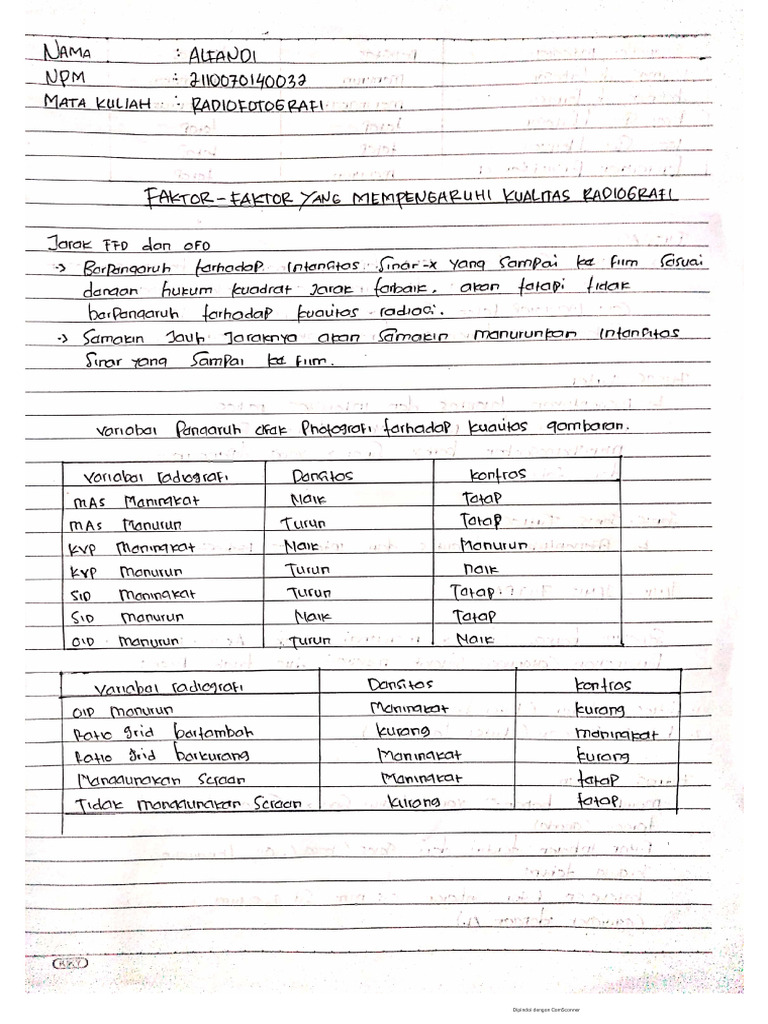 NAMA : ALFANDI
NPM : 2110070140032
MATA KULIAH : RADIOFOTOGRAFI
FAKTOR-FAKTOR YANG MEMPENGARUHI KUALITAS RADIOGRAFI
Jarak FFD dan OFD
-> Berpengaruh terhadap intensitas Sinar-x yang sampai ke film sesuai
dengan hukum kuadrat jarak terbaik, akan tetapi tidak
berpengaruh terhadap kualitas radiasi.
-> Semakin Jauh Jaraknya akan Semakin menurunkan intensitas
Sinar yang Sampai ke film.
Variabel Pengaruh efek Photografi terhadap kualitas gambaran.
Variabel radiografi Densitas kontras
MAS Meningkat Naik Tetap
MAS Menurun Turun Tetap
KVP Meningkat Naik Menurun
KVP Menurun Turun naik
SID Meningkat Turun Tetap
SID Menurun Naik Tetap
OID Menurun Turun Naik
Variabel radiografi Densitas kontras
OID menurun Meningkat kurang
Ratio grid bertambah kurang meningkat
Ratio grid berkurang Meningkat kurang
Menggunakan Screen Meningkat tetap
Tidak menggunakan Screen kurang tetap
KKY
Dipindai dengan CamScanner